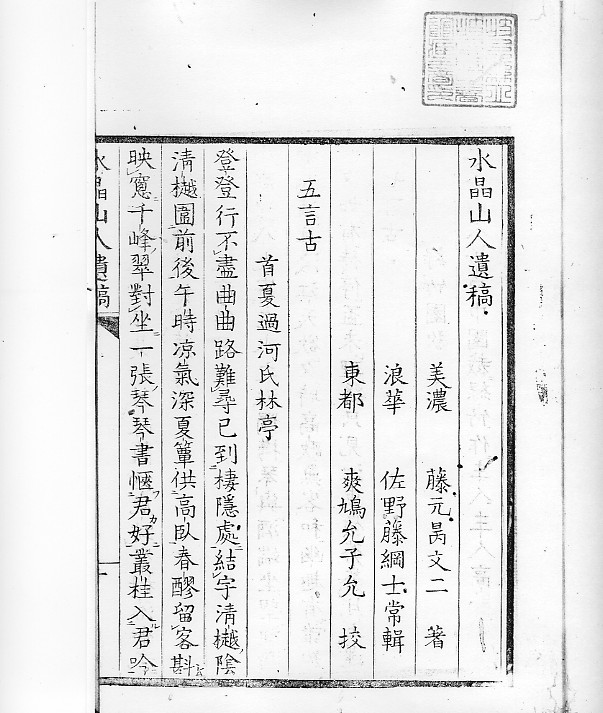 水晶山人遺稿
美濃 藤元昺文二 著
浪華 佐野藤綱士常輯
東都 爽鳩允子允 挍
五言古
首夏過河氏林亭
登登行不盡曲曲路難尋已到棲隱處結宇清樾陰
清樾圍前後午時凉氣深夏簟供高臥春醪留客斟
映窻千峰翠對坐一張琴琴書愜君好叢桂入君吟
水晶山人遺稿